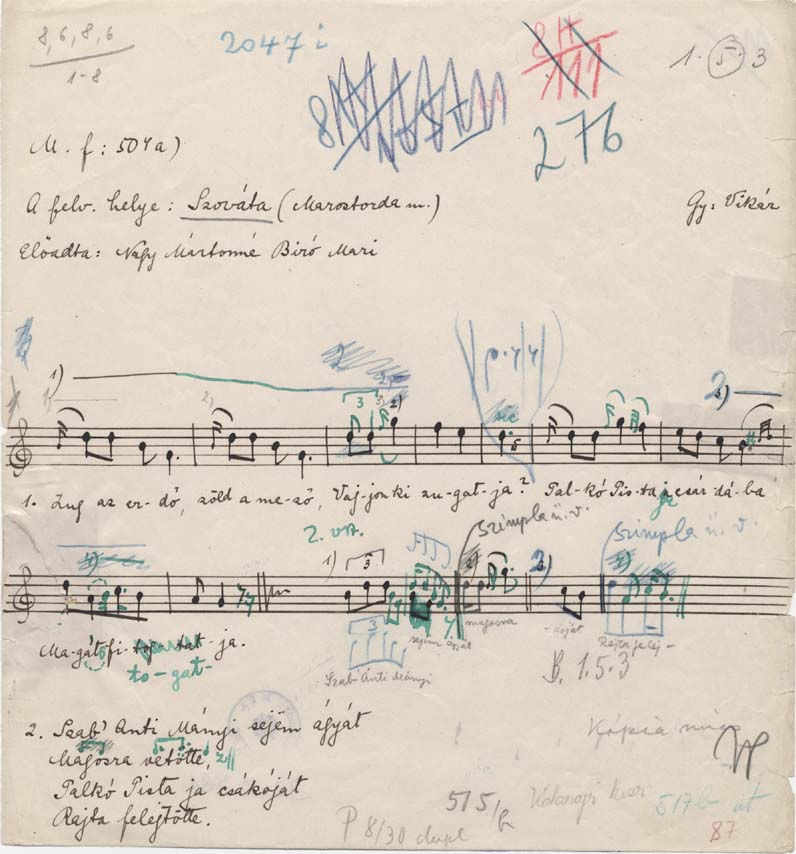 8, 6, 8, 6
1-8
2047 i
1. 5. 3
276
M. f: 504 a)
A felv. helye: Szováta (Marostorda m.)
Gy: Vikár
Előadta: Nagy Mártonné Biró Mari
1)
3
2)
sic
3)
1. Zug az er-dő, zöld a me-ző, Vaj-jon ki zu-gat-ja? Pal-kó Pis-ta ja csár-dá-ba
2. vsz.
szimpla ü. v.
szimpla ü. v.
1)
3
Ma-gát fi-tat-ja.
to-gat-
3
sejëm ágyát
magosra
-kóját
Rajta felej-
Szab' Anti Mányi
B. 1. 5. 3
2. Szab' Anti Mányi sejëm ágyát
Magosra vetötte,
Palkó Pista ja csákóját
Rajta felejtötte.
Kópia nincs
P 8/30 dupl
515/b
517b
87